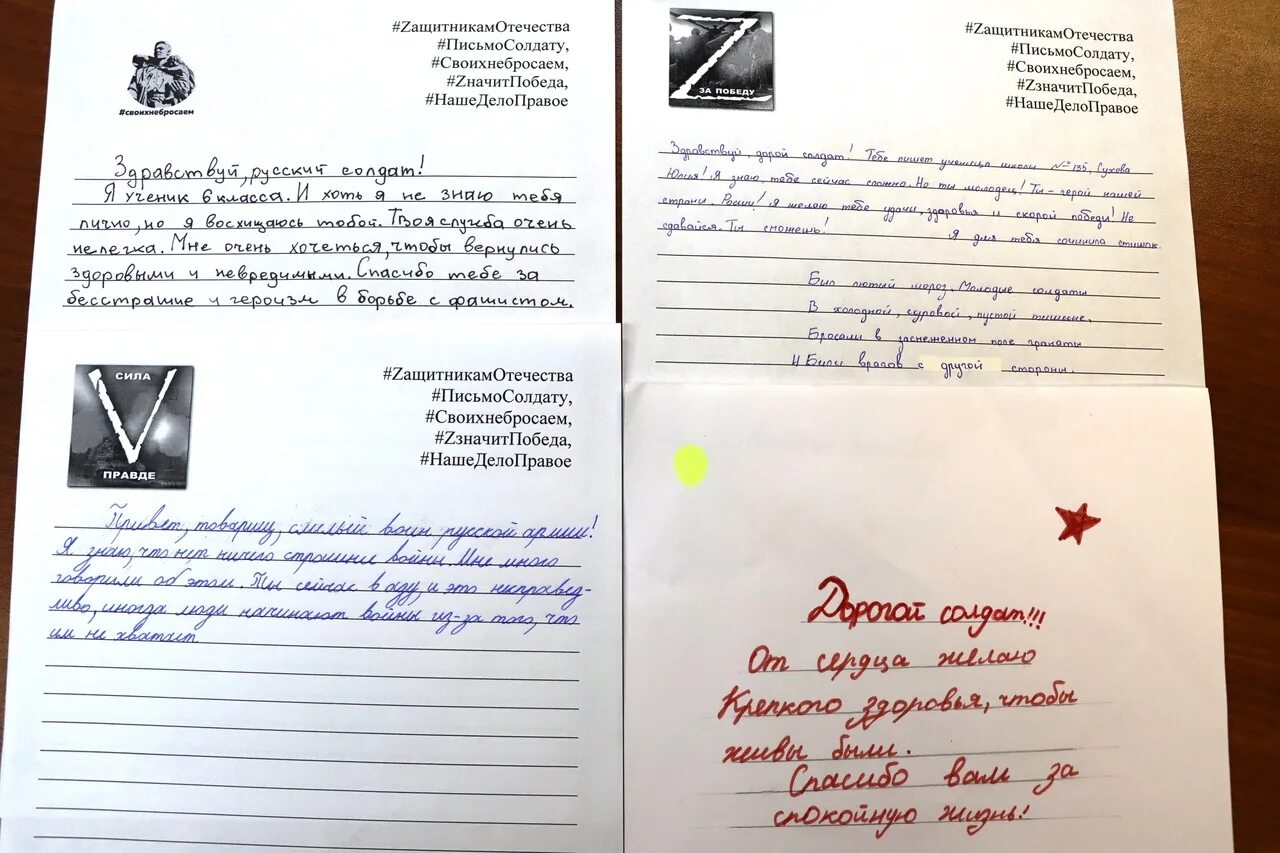 #своихнебросаем
#ZащитникамОтечества
#ПисьмоСолдату,
#Своихнебросаем,
#ZначитПобеда,
#НашеДелоПравое
Здравствуй, русский солдат!
Я ученик 6 класса. И хоть я не знаю тебя
лично, но я восхищаюсь тобой. Твоя служба очень
нелегка. Мне очень хочеться, чтобы вернулись
здоровыми и невредимыми. Спасибо тебе за
бесстрашие и героизм в борьбе с фашистом.
ЗА ПОБЕДУ
#ZащитникамОтечества
#ПисьмоСолдату,
#Своихнебросаем,
#ZзначитПобеда,
#НашеДелоПравое
Здравствуй, дорой солдат! Тебе пишет ученица школы №135, Сухова
Юлия! Я знаю, тебе сейчас сложно. Но ты молодец! Ты - герой нашей
страны. Росии! Я желаю тебе удачи, здоровья и скорой победы! Не
сдавайся. Ты сможешь! Я для тебя сочинила стишок.
Был лютый мороз. Молодые солдаты
В холодной, суровой, пустой тишине,
Бросали в заснеженном поле гранаты
И били врагов с другой стороны.
СИЛА
V
ПРАВДЕ
#ZащитникамОтечества
#ПисьмоСолдату,
#Своихнебросаем,
#ZзначитПобеда,
#НашеДелоПравое
Привет, товарищ, смелый воин русской армии!
Я знаю, что нет ничего страшнее войны. Мне много
говорили об этом. Ты сейчас в аду, и это несправед-
ливо, иногда люди начинают войны из-за того, что
им не хватает
Дорогой солдат!!!
От сердца желаю
Крепкого здоровья, чтобы
живы были.
Спасибо вам за
спокойную жизнь!